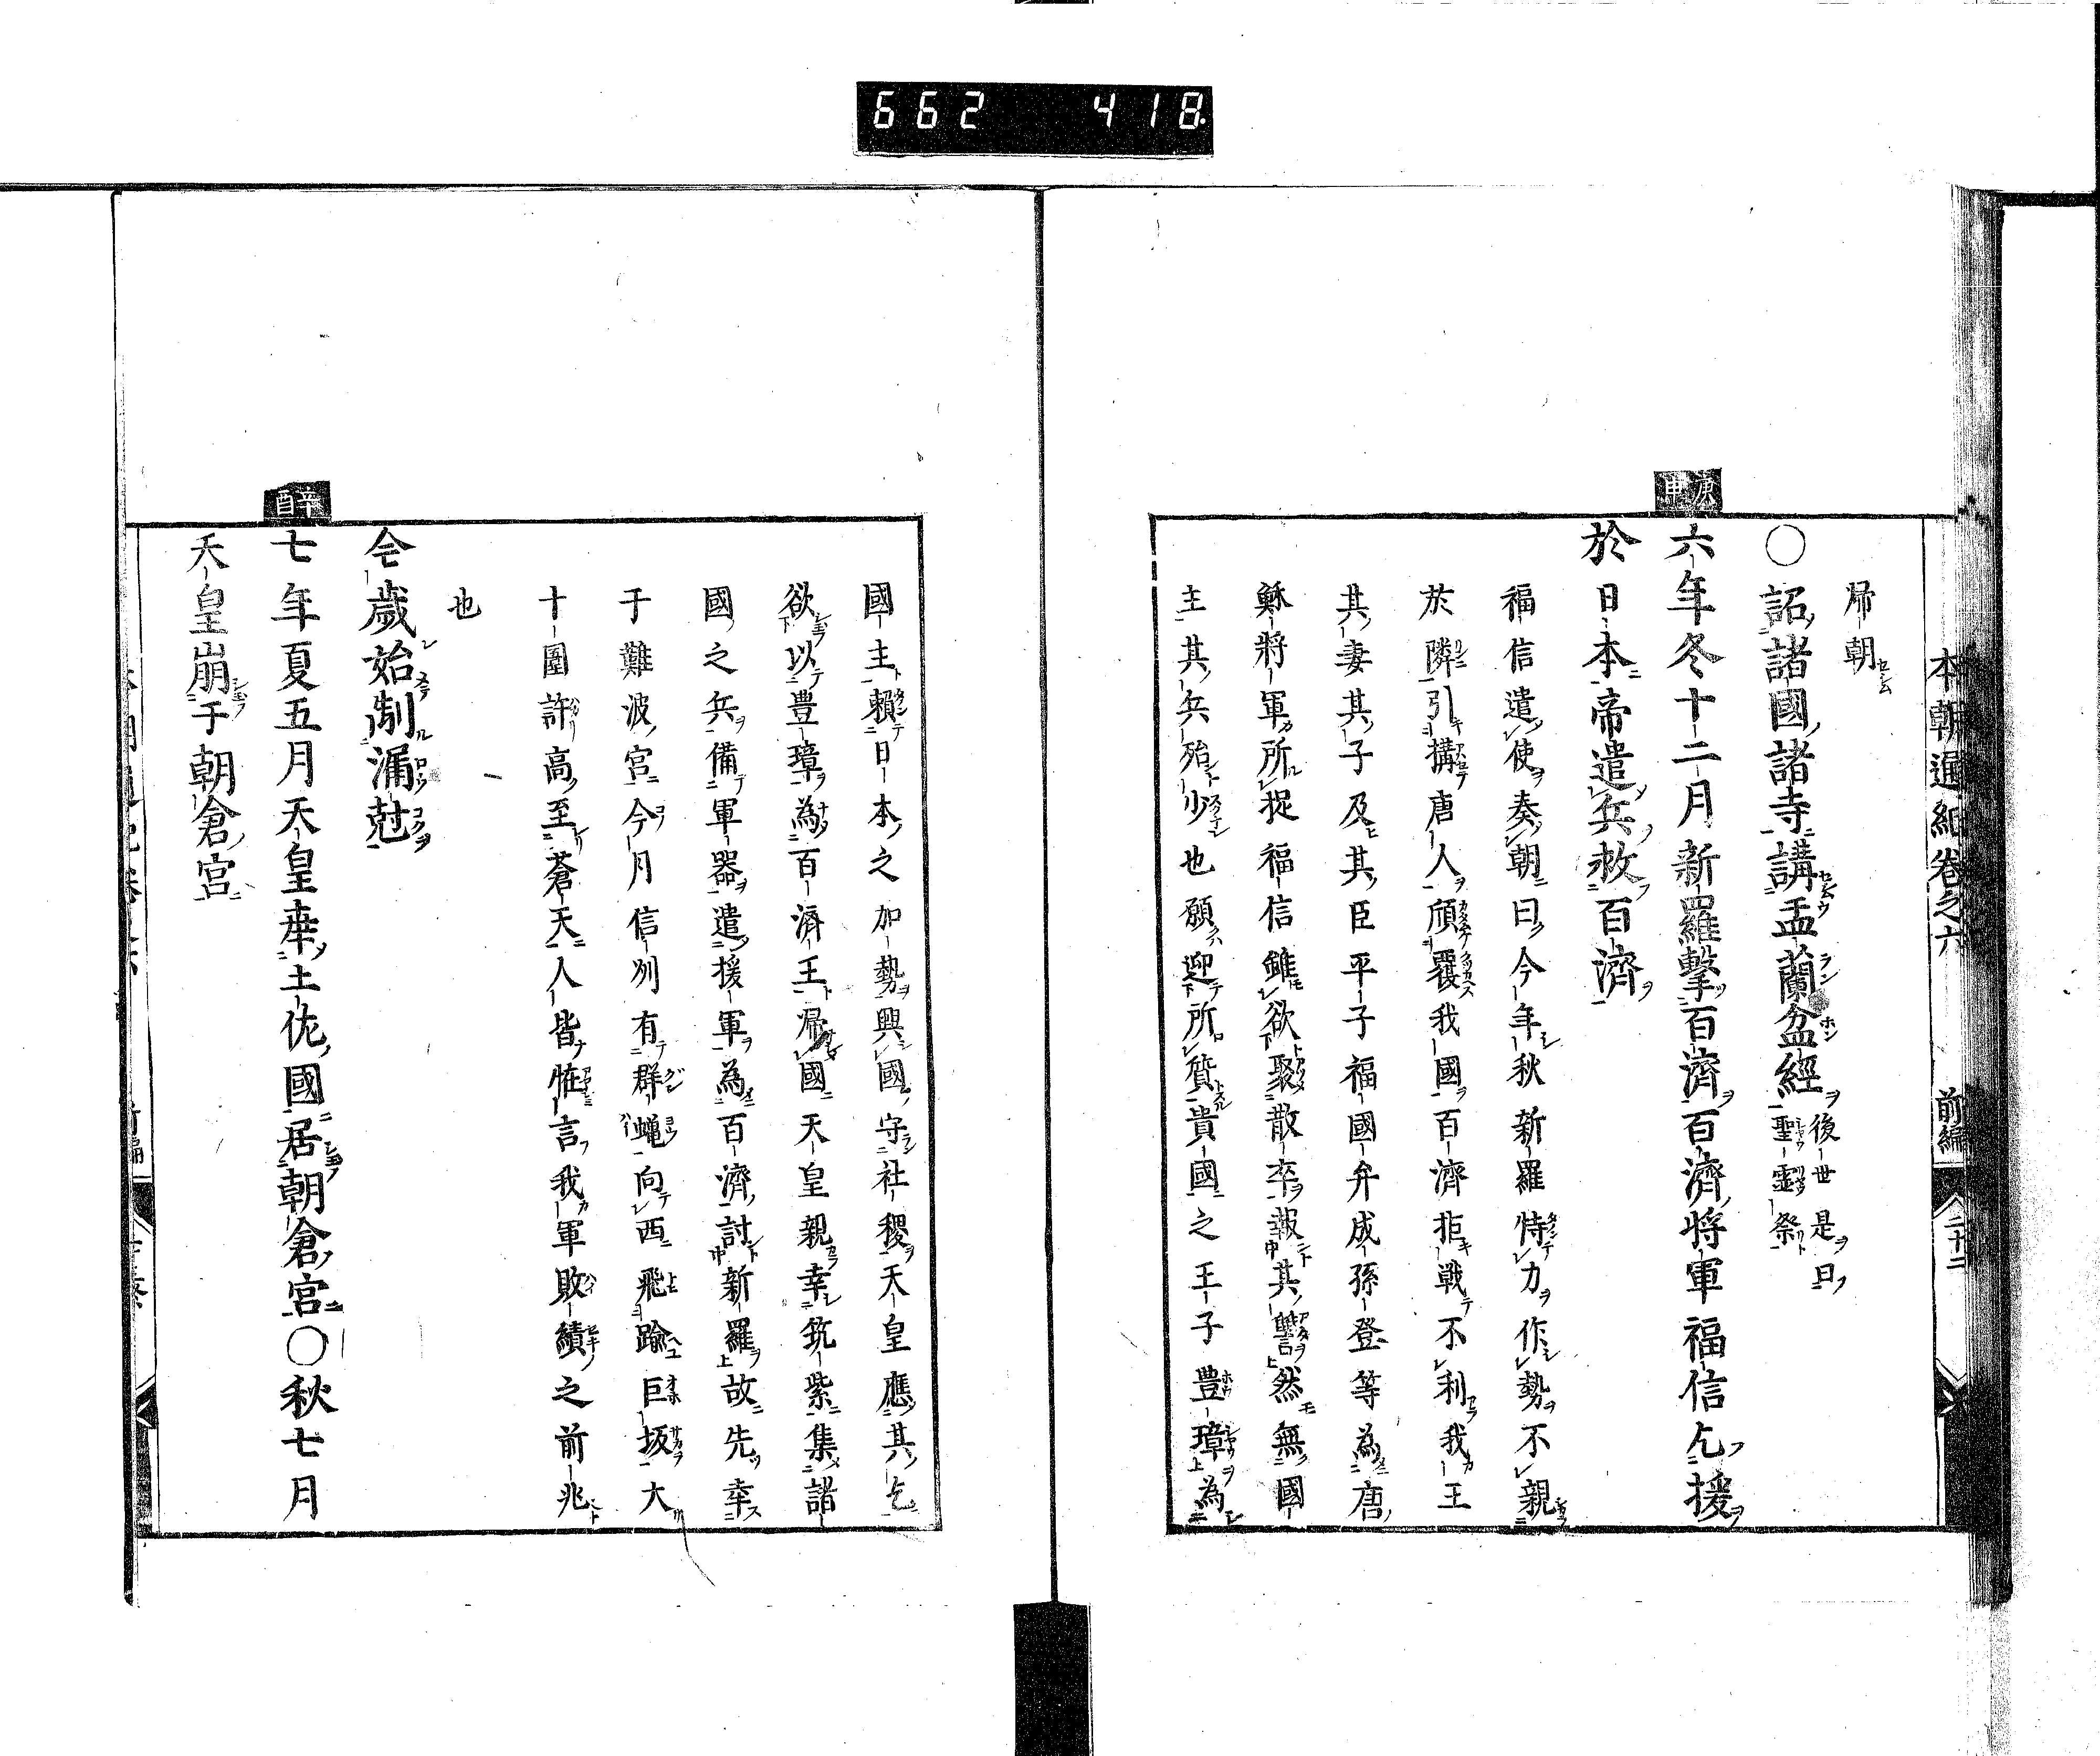 662 418
本朝通紀卷之六 前編 二十二
帰朝
〇詔諸國諸寺講盂蘭盆經後世是曰
聖靈祭
庚申
六年冬十二月新羅擊百濟百濟將軍福信乞援
於日本帝遣兵救百濟
福信遣使奏朝曰今年秋新羅恃力作勢不親
於隣引搆唐人傾覆我國百濟拒戰不利我王
其妻其子及其臣平子福國弁成孫登等為唐
蘇將軍所捉福信雖欲聚散卒報其讐然無國
主其兵殆少也願迎所質貴國之王子豊璋為
國主賴日本之加勢興國守社稷天皇應其乞
欲以豊璋為百濟王帰國天皇親幸筑紫集諸
國之兵備軍器遣援軍為百濟討新羅故先幸
于難波宮今月信列有群蠅向西飛踰巨坂大
十圍許高至蒼天人皆恠言我軍敗績之前兆
也
今歲始制漏尅
辛酉
七年夏五月天皇幸土佐國居朝倉宮〇秋七月
天皇崩于朝倉宮